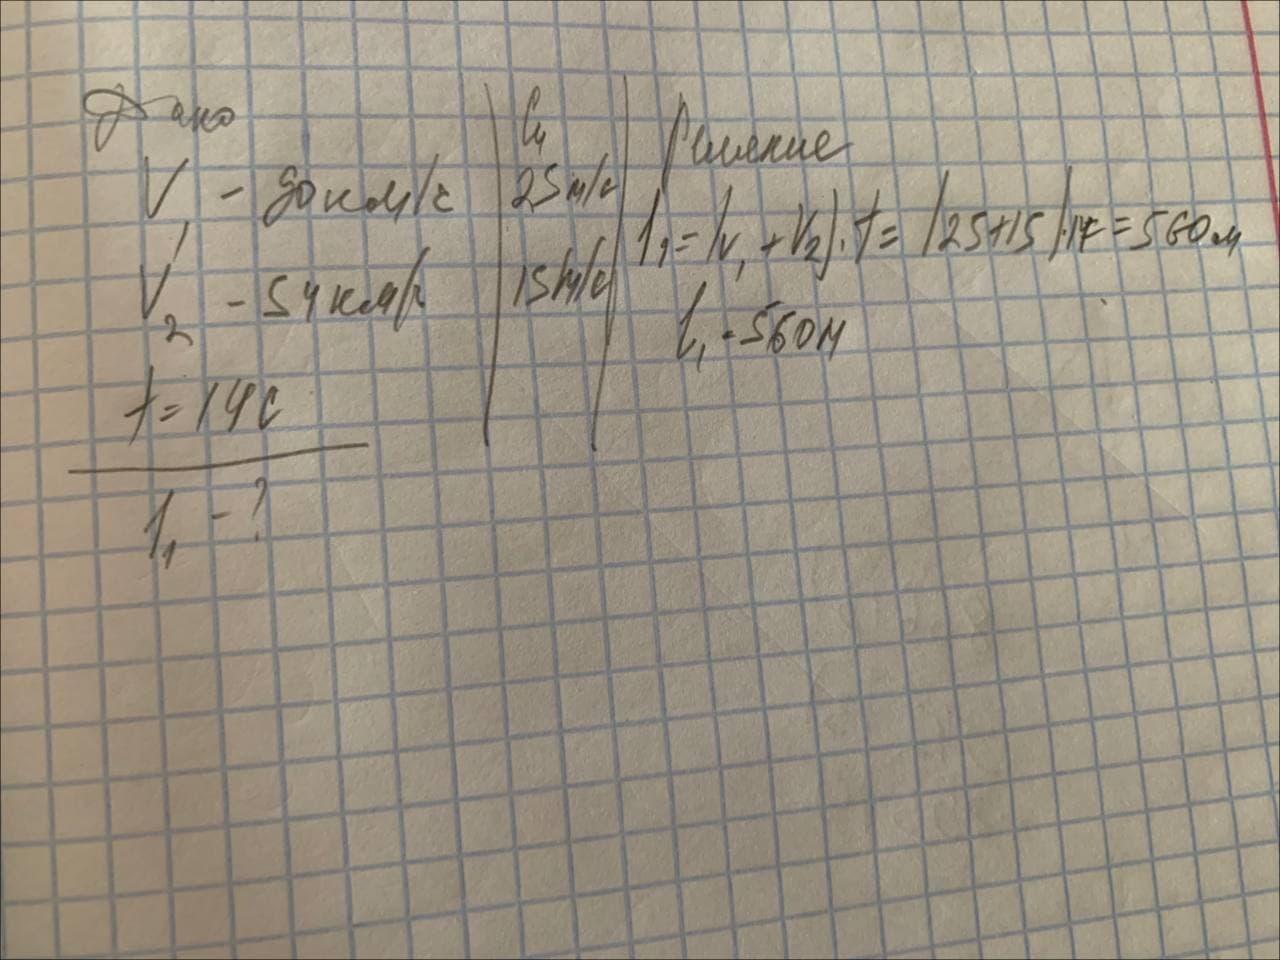 Дано
V₁ - 90 км/с
V₂ - 54 км/
t = 14 с
l₁ - ?
Си
25 м/с
15 м/с
Решение
l₁ = (v₁ + V₂) · t = (25+15) · 14 = 560 м
l₁ - 560 м